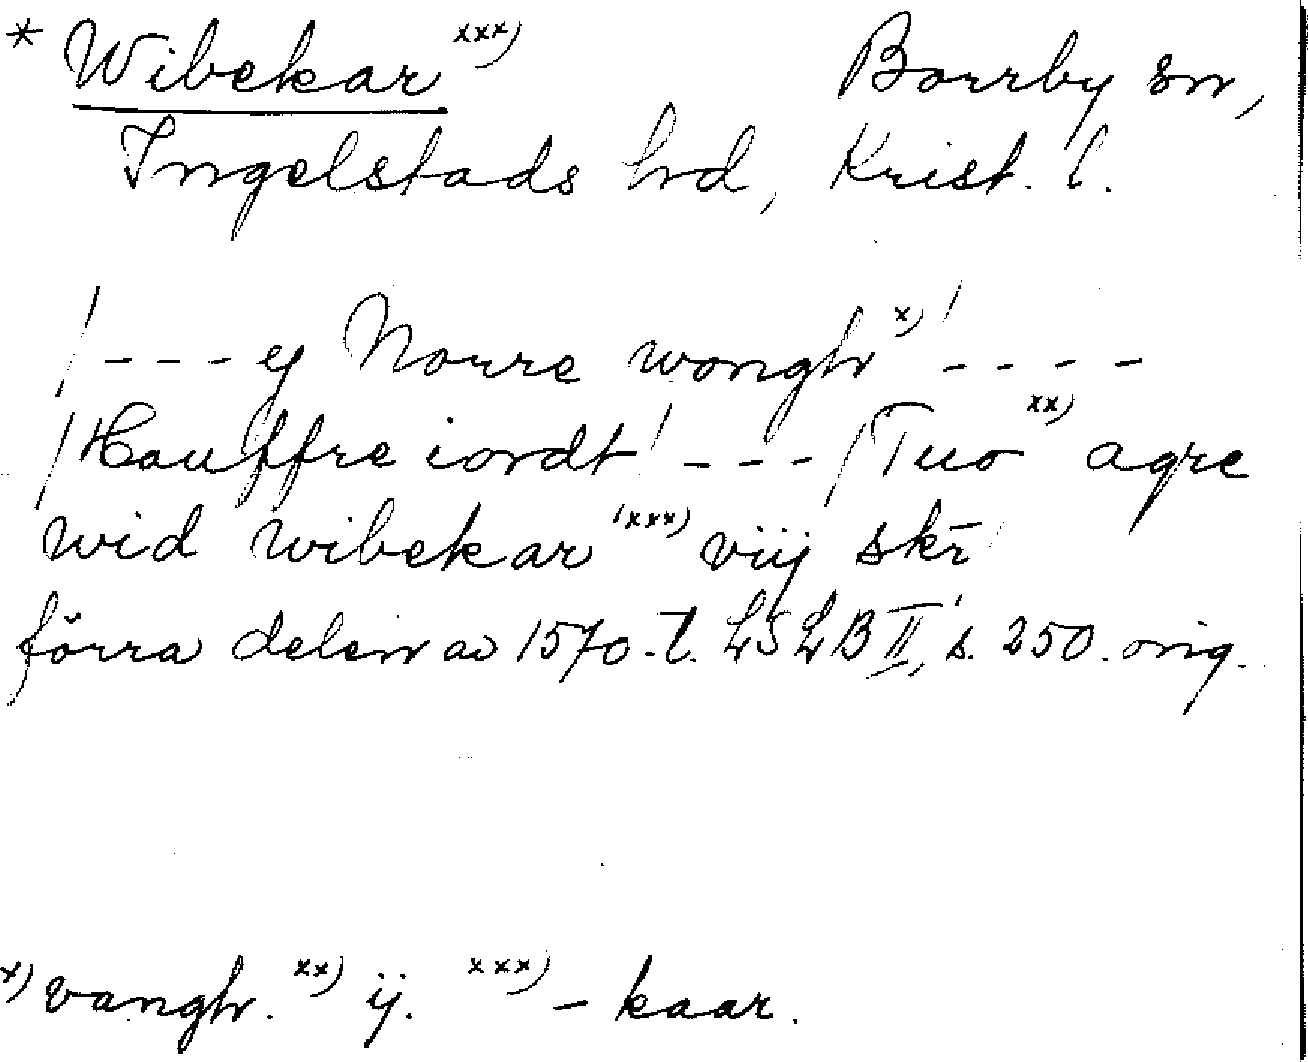 * Wibekar xxx) Borrby sn,
Ingelstads hrd, Krist. l.
/--- ej Norre wongh x)/ ----
/Hauffre iordt/ --- /Tuo xx) agre
wid wibekar /xxx) viij skr̄
förra delen av 1570-t. LSLB II, s. 250. orig.
x) vangh. xx) ij. xxx) - kaar.